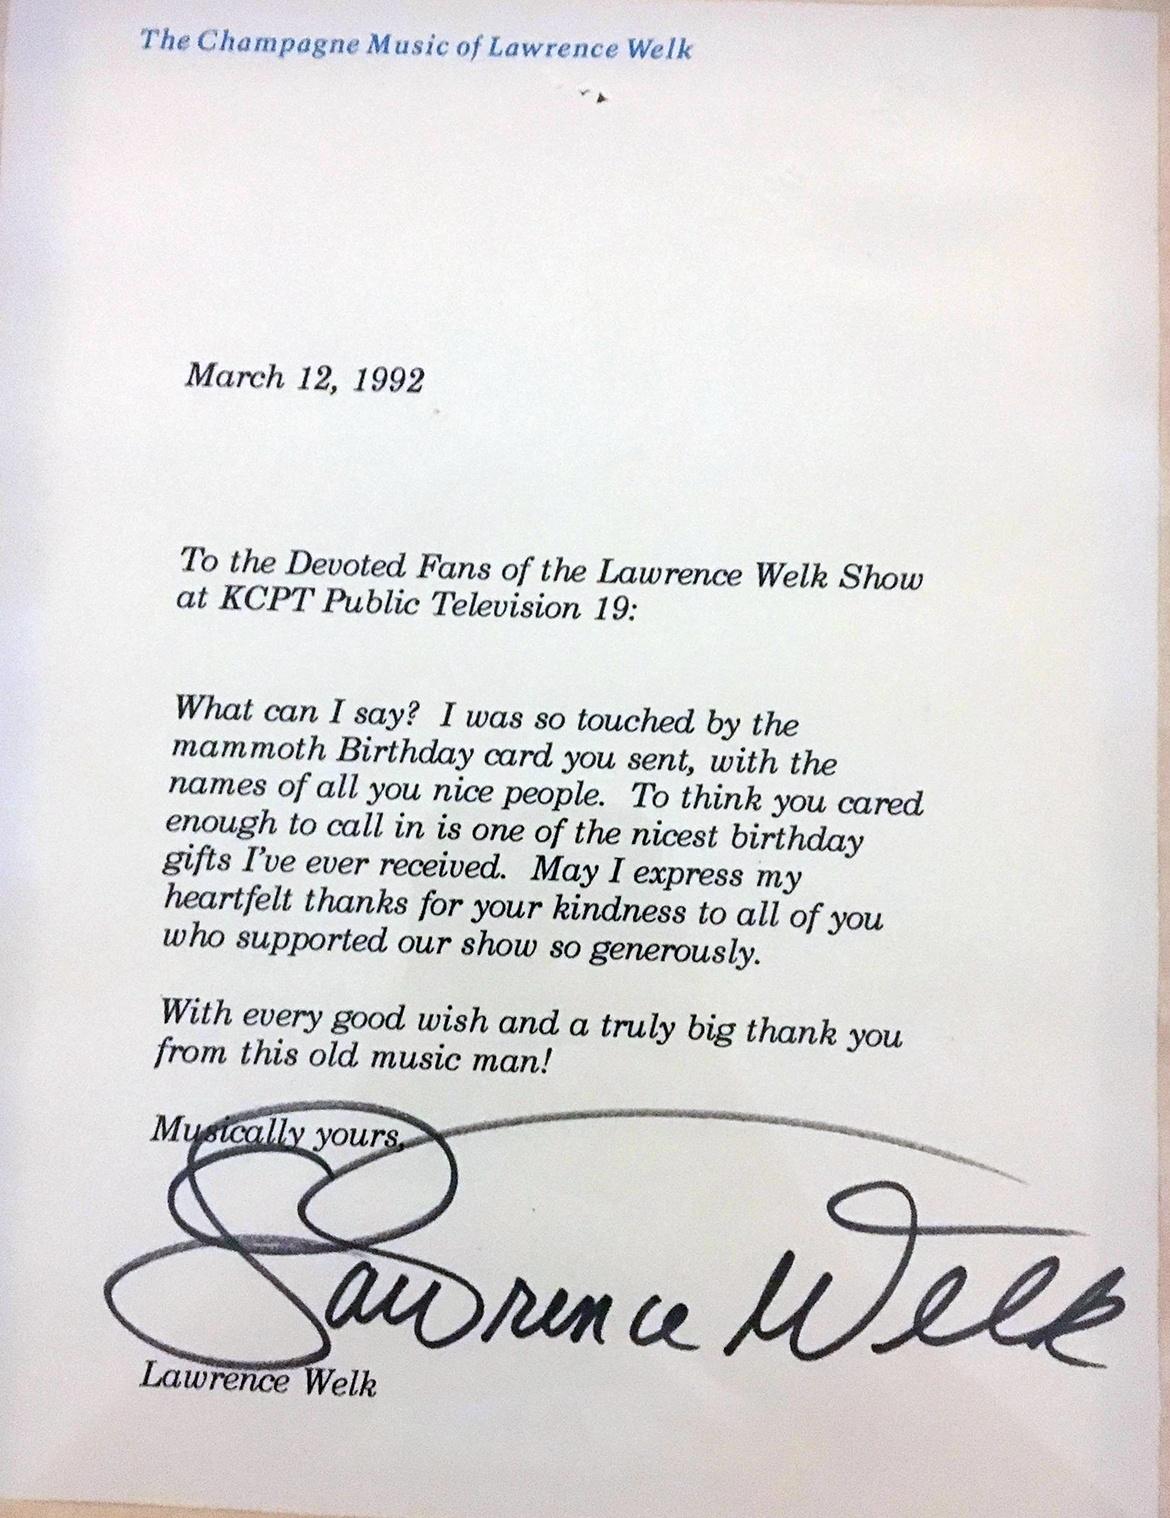 The Champagne Music of Lawrence Welk
March 12, 1992
To the Devoted Fans of the Lawrence Welk Show
at KCPT Public Television 19:
What can I say?  I was so touched by the
mammoth Birthday card you sent, with the
names of all you nice people.  To think you cared
enough to call in is one of the nicest birthday
gifts I've ever received.  May I express my
heartfelt thanks for your kindness to all of you
who supported our show so generously.
With every good wish and a truly big thank you
from this old music man!
Musically yours,
Lawrence Welk
Lawrence Welk